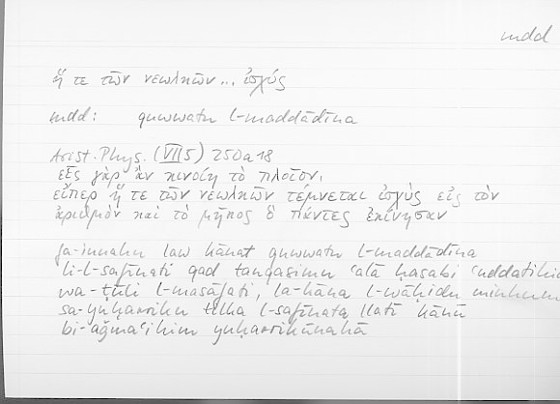 mdd
ἥ τε τῶν νεωλκῶν... ἰσχύς
mdd: quwwatu l-maddādīna
Arist. Phys. (VII 5) 250a18
εἷς γὰρ ἂν κινοίη τὸ πλοῖον,
εἴπερ ἥ τε τῶν νεωλκῶν τέμνεται ἰσχὺς εἰς τὸν
ἀριθμὸν καὶ τὸ μῆκος ὃ πάντες ἐκίνησαν
fa-innahu law kānat quwwatu l-maddādīna
li-l-safīnati qad tanqasimu ʿalā ḥasabi ʿuddatihim
wa-ṭūli l-masāfati, la-kāna l-wāḥidu minhum
sa-yuḥarriku tilka l-safīnata llatī kānū
bi-aǧmaʿihim yuḥarrikūnahā